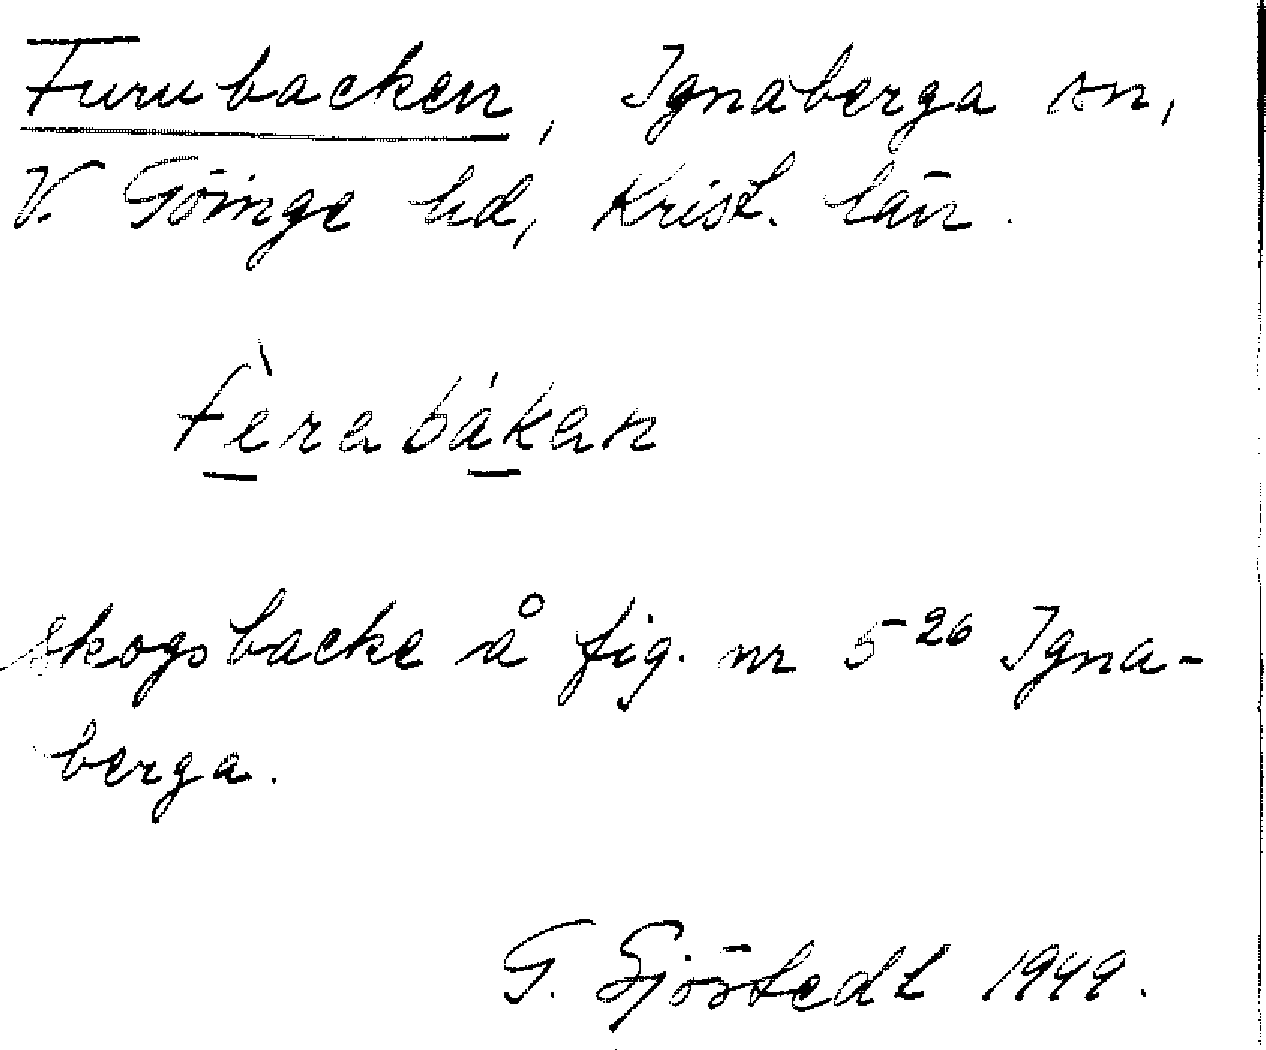 Furubacken, Ignaberga sn,
V. Göinge hd, Krist. län.
fèrabákan
skogsbacke å fig. nr 5 26 Igna-
berga.
G. Sjöstedt 1949.